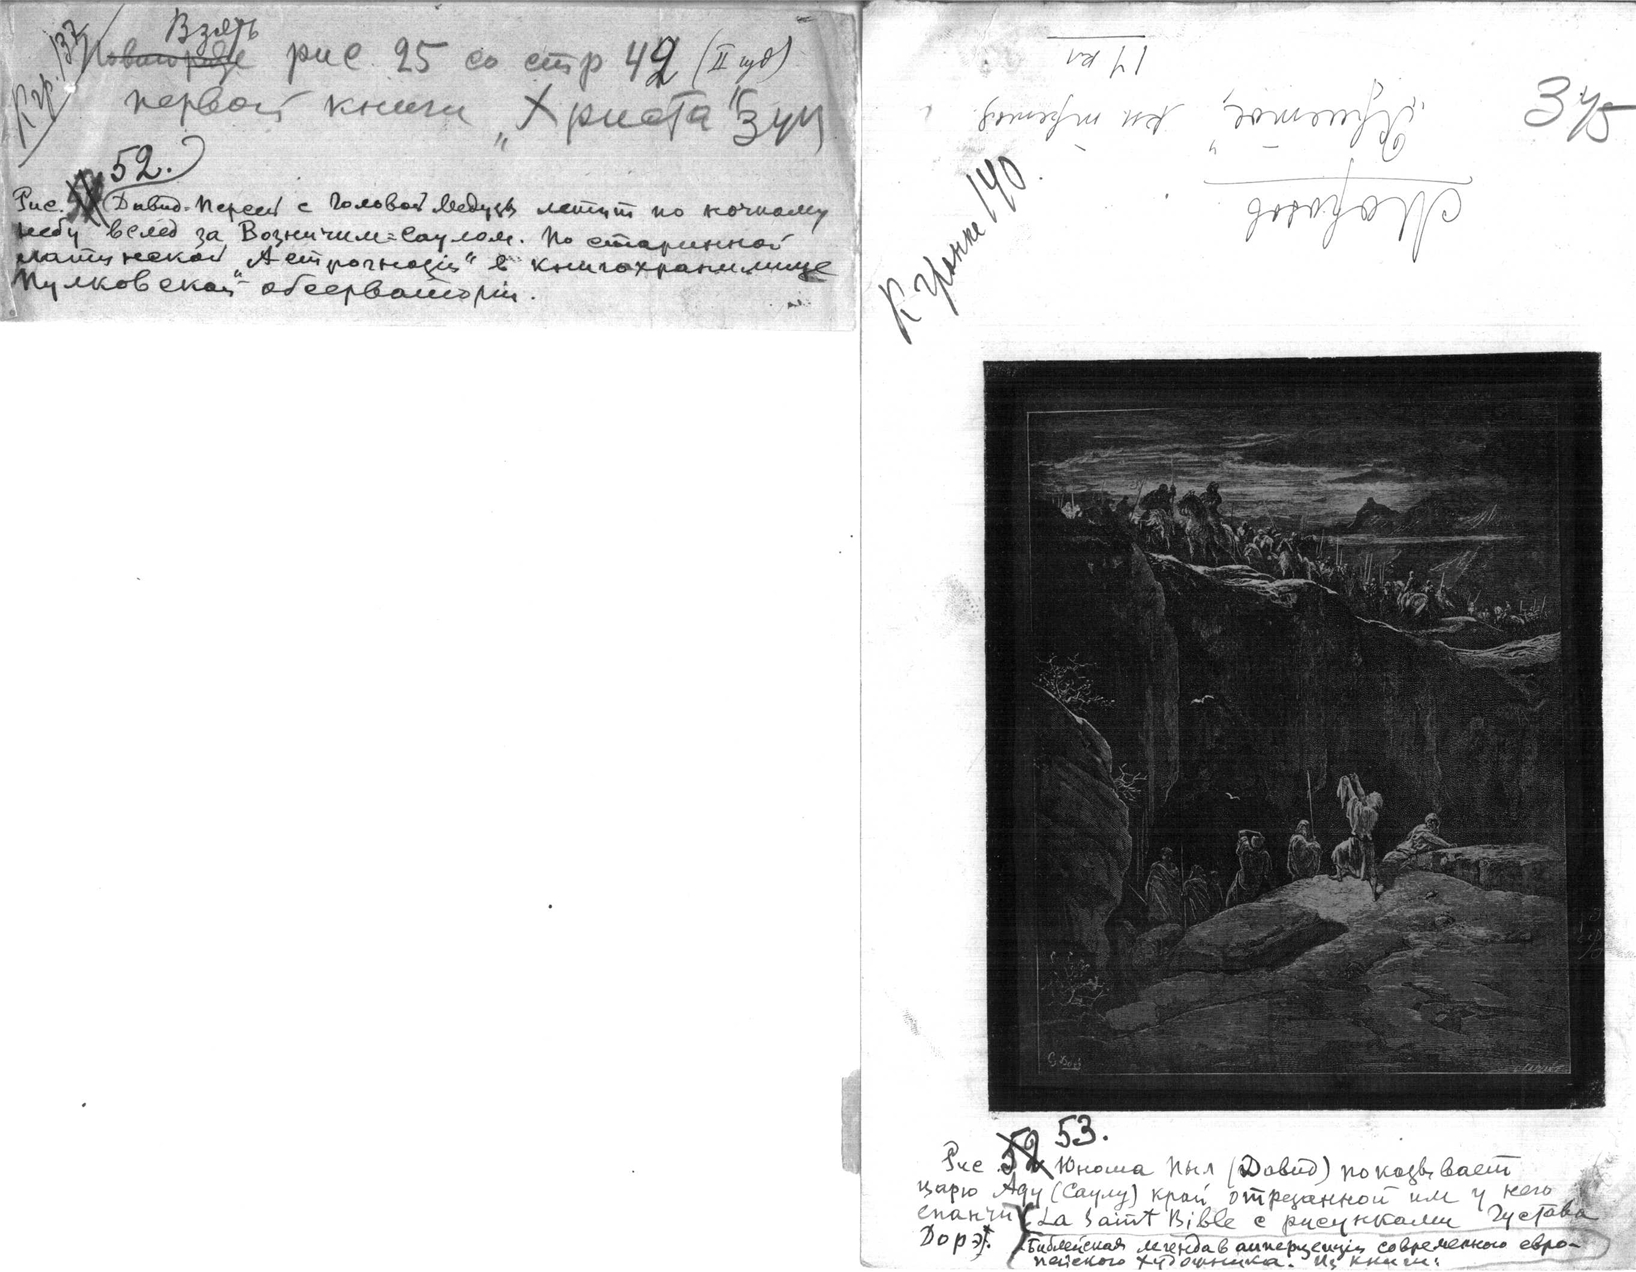 К гр. 137
Взять
рис. 25 со стр 42 (II изд)
первой книги „Христа"
52.
Рис. Давид-Персей с головой Медузы летит по ночному
небу вслед за Возничим=Саулом. По старинной
латинской „Астрогнозіи" в книгохранилище
Пулковской обсерваторіи.
17 кл
„Христос" кн третья
Морозов
К гранке 140.
G. Doré
53.
Рис. 52 Юноша Пыл (Давид) показывает
царю Аду (Саулу) край отрезанной им у него
епанчи La Saint Bible с рисунками Густава
Дорэ.
Библейская легенда в апперцепціи современного евро-
пейского художника. Из книги: